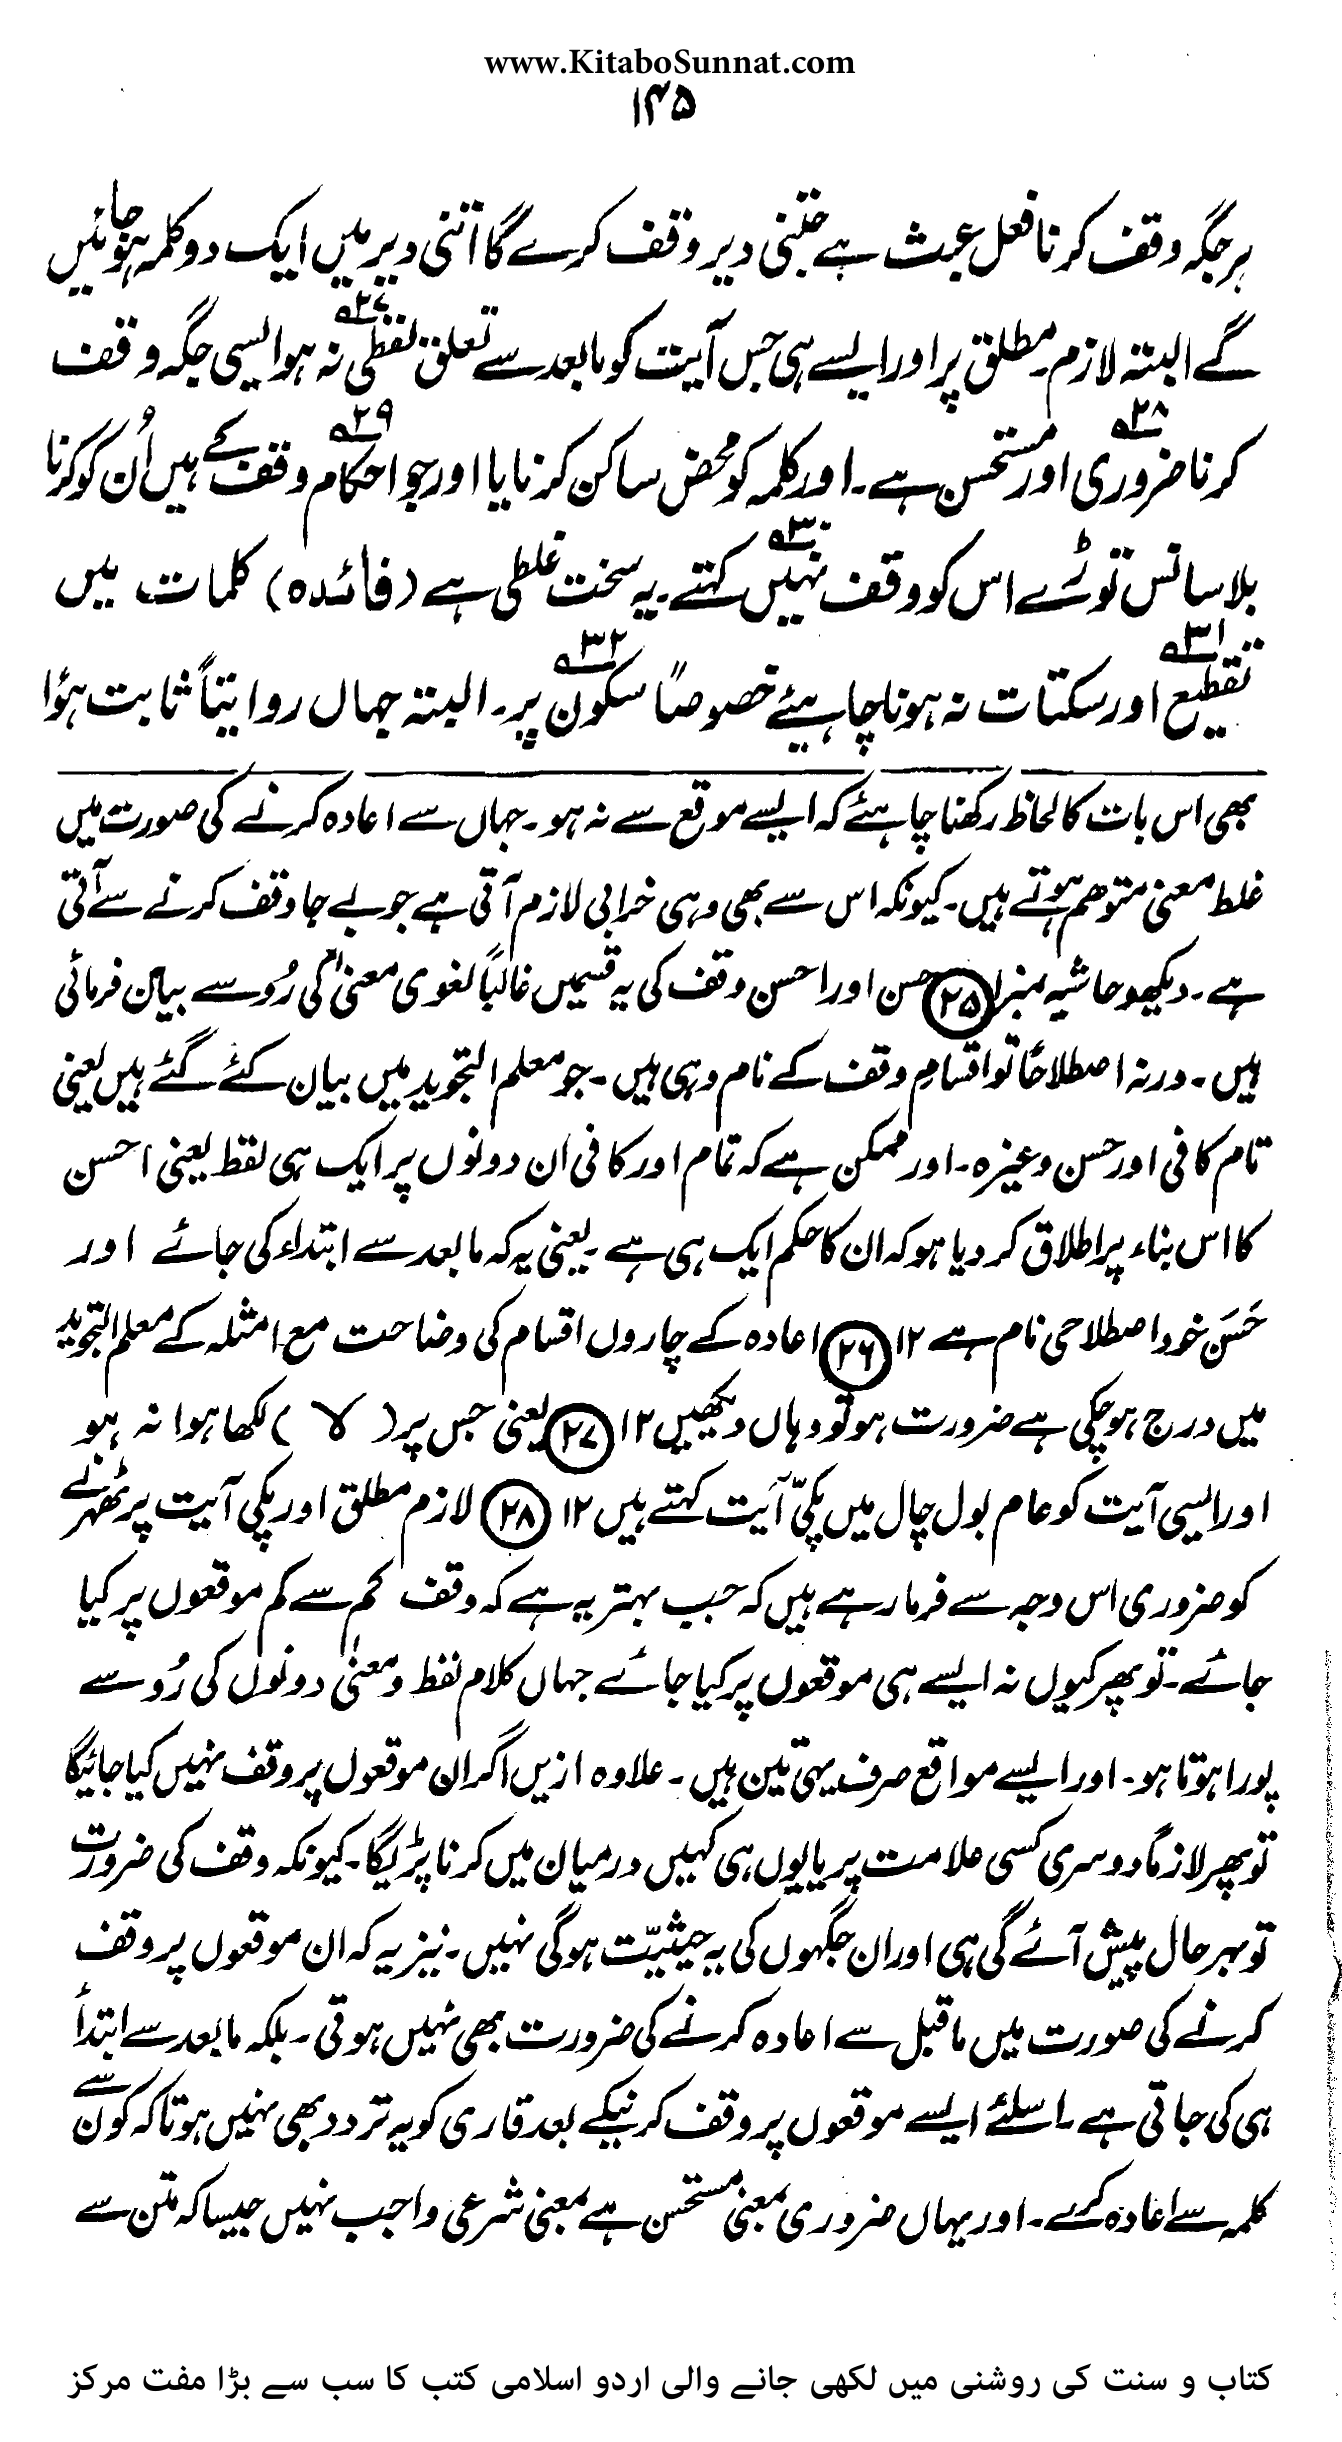 www.KitaboSunnat.com
۱۴۵
ہر جگہ وقف کرنا فعل عبث ہے جتنی دیر وقف کرے گا اتنی دیر میں ایک دو کلمہ ہوجائیں
گے البتہ لازم۔ مطلق پر اور ایسے ہی جس آیت کو مابعد سے تعلق لفظی۲۷؂ نہ ہو ایسی جگہ وقف
کرنا ضروری۲۸؂ اور مستحسن ہے۔ اور کلمہ کو محض ساکن کرنا یا اور جو احکام۲۹؂ وقف کے ہیں اُن کو کرنا
بلا سانس توڑے اس کو وقف نہیں۳۰؂ کہتے۔ یہ سخت غلطی ہے (فائدہ) کلمات میں
تقطیع۳۱؂ اور سکتات نہ ہونا چاہیئے خصوصاً سکون۳۲؂ پر۔ البتہ جہاں روایتاً ثابت ہوٗا
بھی اس بات کا لحاظ رکھنا چاہئے کہ ایسے موقع سے نہ ہو۔ جہاں سے اعادہ کرنے کی صورت میں
غلط معنی متوھم ہوتے ہیں۔ کیونکہ اس سے بھی وہی خرابی لازم آتی ہے جو بے جا وقف کرنے سے آتی
ہے۔ دیکھو حاشیہ نمبر۱ (۲۵) حسن اور احسن وقف کی یہ قسمیں غالباً لغوی معنیٰ کی رُو سے بیان فرمائی
ہیں۔ ورنہ اصطلاحًا تو اقسامِ وقف کے نام وہی ہیں۔ جو معلم التجوید میں بیان کئے گئے ہیں یعنی
تام کافی اور حسن وغیرہ۔ اور ممکن ہے کہ تمام اور کافی ان دونوں پر ایک ہی لفظ یعنی احسن
کا اس بناء پر اطلاق کر دیا ہو کہ ان کا حکم ایک ہی ہے۔ یعنی یہ کہ مابعد سے ابتداء کی جائے اور
حَسَن خود اصطلاحی نام ہے ۱۲ (۲۶) اعادہ کے چاروں اقسام کی وضاحت مع امثلہ کے معلم التجوید
میں درج ہوچکی ہے ضرورت ہو تو وہاں دیکھیں ۱۲ (۲۷) یعنی جس پر ( لا ) لکھا ہوا نہ ہو
اور ایسی آیت کو عام بول چال میں پکیّ آیت کہتے ہیں ۱۲ (۲۸) لازم مطلق اور پکی آیت پر ٹھہرنے
کو ضروری اس وجہ سے فرما رہے ہیں کہ جب بہتر یہ ہے کہ وقف کم سے کم موقعوں پر کیا
جائے۔ تو پھر کیوں نہ ایسے ہی موقعوں پر کیا جائے جہاں کلام لفظ و معنیٰ دونوں کی رُو سے
پورا ہوتا ہو۔ اور ایسے مواقع صرف یہی تین ہیں۔ علاوہ ازیں اگر ان موقعوں پر وقف نہیں کیا جائیگا
تو پھر لازماً دوسری کسی علامت پر یا یوں ہی کہیں درمیان میں کرنا پڑیگا۔ کیونکہ وقف کی ضرورت
تو بہر حال پیش آئے گی ہی اور ان جگہوں کی یہ حیثیّت ہوگی نہیں۔ نیز یہ کہ ان موقعوں پر وقف
کرنے کی صورت میں ماقبل سے اعادہ کرنے کی ضرورت بھی نہیں ہوتی۔ بلکہ مابعد سے ابتدأ
ہی کی جاتی ہے۔ اسلئے ایسے موقعوں پر وقف کرنیکے بعد قاری کو یہ تردد بھی نہیں ہوتا کہ کون سے
کلمہ سے اعادہ کرے۔ اور یہاں ضروری بمعنی مستحسن ہے بمعنی شرعی واجب نہیں جیسا کہ متن سے
کتاب و سنت کی روشنی میں لکھی جانے والی اردو اسلامی کتب کا سب سے بڑا مفت مرکز